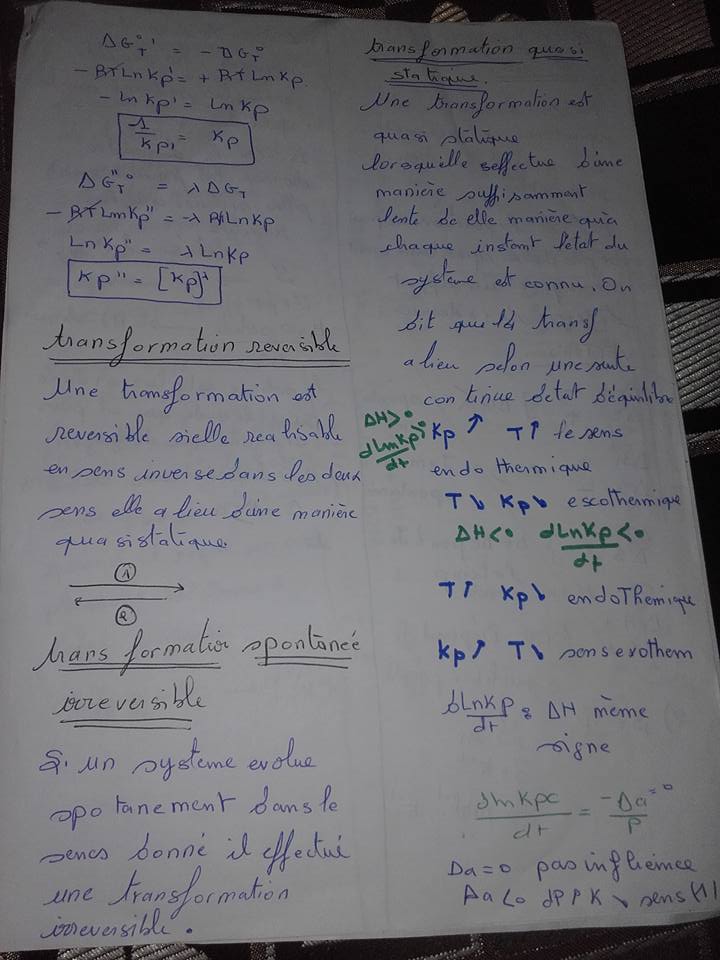 ΔG°'T = - ΔG°T
- RT Ln Kp' = + RT Ln Kp
- Ln Kp' = Ln Kp
1/Kp' = Kp
ΔG"°T = λ ΔGT
- RT Ln Kp" = -λ RT Ln Kp
Ln Kp" = λ Ln Kp
Kp" = [Kp]^λ
transformation reversible
Une transformation est
reversible si elle realisable
en sens inverse dans les deux
sens elle a lieu d'une manière
quasistatique.
①
②
transformation spontaneé
irreversible
Si un systeme evolue
spotanement dans le
sens donné il effectué
une transformation
irreversible.
transformation quasi
statique.
Une transformation est
quasi statique
lorsqu'elle s'effectue d'une
manière suffisamment
lente de elle manière qu'a
chaque instant l'etat du
système est connu. On
dit que la transf
a lieu selon une suite
continue d'etat d'équilibre
ΔH>0
dLnKp/dt >0 Kp ↗ T↑ le sens
endo thermique
T↘ Kp↘ escothermique
ΔH<0 dLnKp/dt <0
T↑ Kp↘ endoThemique
Kp↗ T↘ sens exothem
dLnKp/dt & ΔH même
signe
dlnKpc/dt = -Δa/P =0
Δa=0 pas inflience
Δa<0 dP↗ K↘ sens (1)